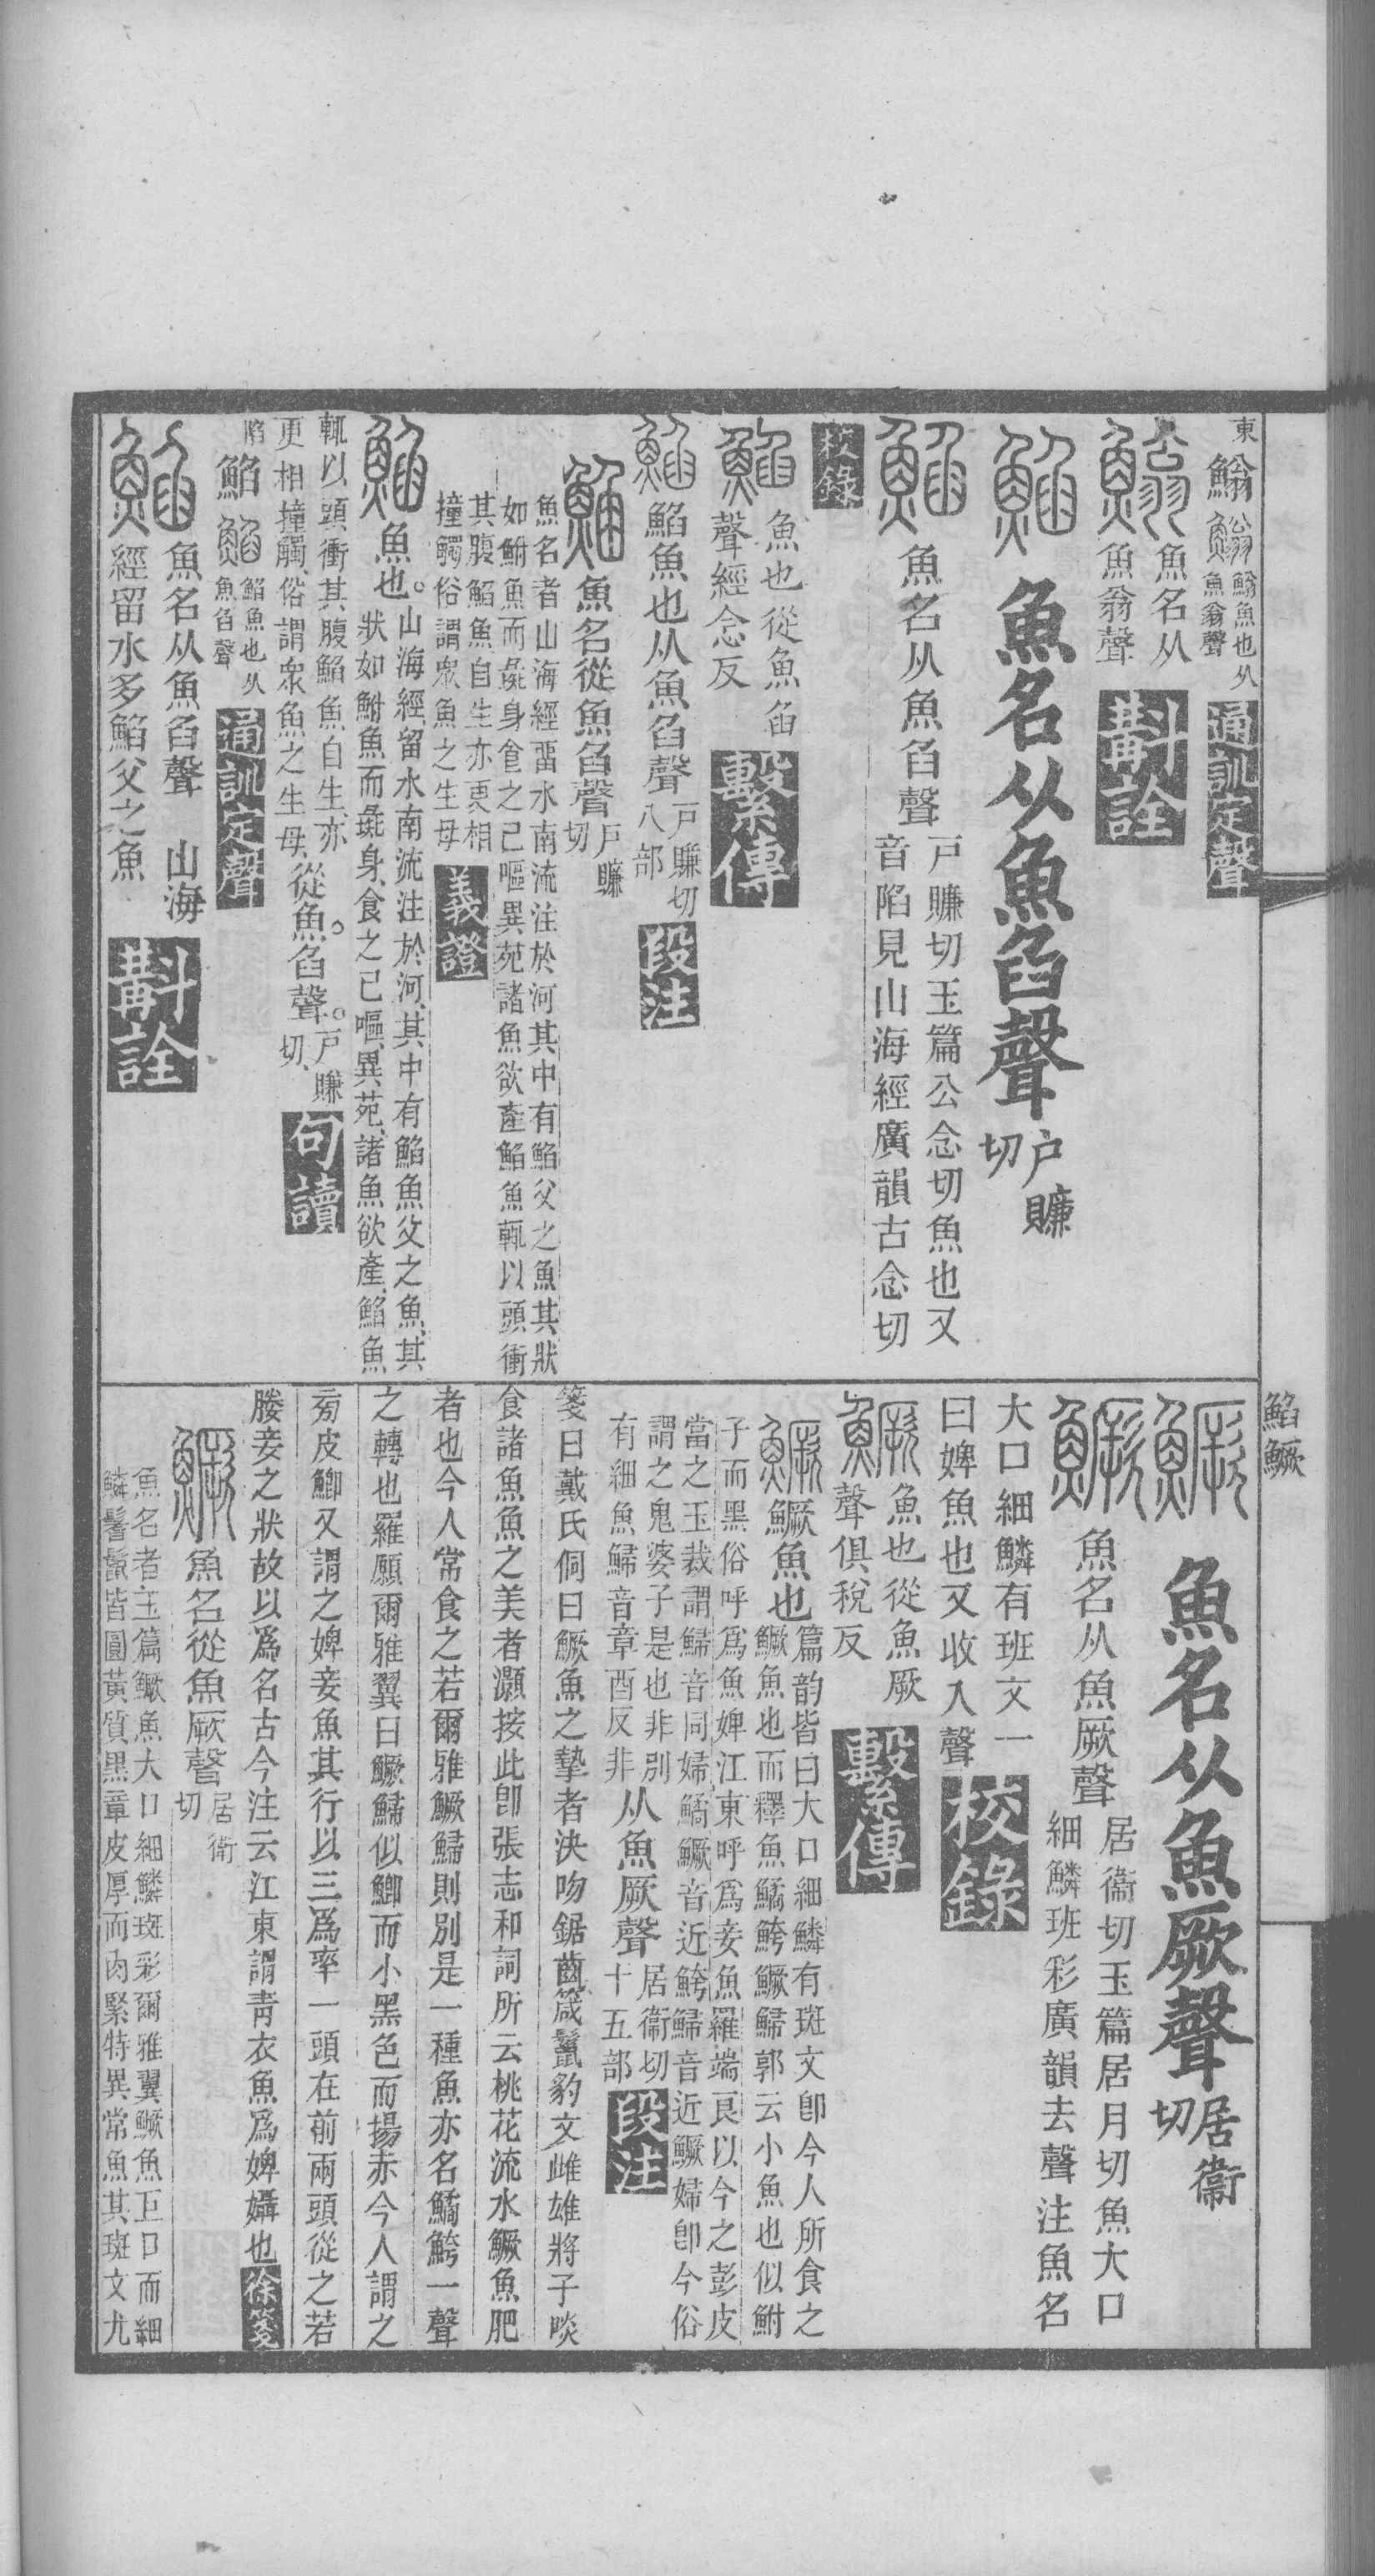 東
鰯魚也从
魚翁聲
通訓定聲
魚名从
魚翁聲
斠詮
魚名从魚臽聲
户賺
切
魚名从魚臽聲
戸賺切玉篇公念切魚也又
音陷見山海經廣韻古念切
校錄
魚也從魚臽
聲經念反
繫傳
鮥魚也从魚臽聲
戸賺切
八部
段注
魚名從魚臽聲
戸賺
切
魚名者山海經畱水南流注於河其中有鮥父之魚其狀
如鮒魚而彘身食之已嘔異苑諸魚欲產鮥魚輒以頭衝
其腹鮥魚自生亦更相
撞觸俗謂衆魚之生母
義證
魚也。
山海經、留水南流注於河、其中有鮥魚父之魚、其
狀如鮒魚而彘身、食之已嘔、異苑、諸魚欲產、鮥魚
輒以頭衝其腹、鮥魚自生、亦
更相撞觸、俗謂衆魚之生母、
從魚。臽聲。
戸賺
切、
句讀
陷
鮥
鮥魚也从
魚臽聲
通訓定聲
魚名从魚臽聲
山海
經留水多鮥父之魚
斠詮
鮥鱖
魚名从魚厥聲
居衞
切
魚名从魚厥聲
居衞切玉篇居月切魚大口
細鱗班彩廣韻去聲注魚名
大口細鱗有班文一
曰婢魚也又收入聲
校錄
魚也從魚厥
聲俱稅反
繫傳
鱖魚也
篇韵皆曰大口細鱗有斑文卽今人所食之
鱖魚也而釋魚鱊鮬鱖鯞郭云小魚也似鮒
子而黑俗呼爲魚婢江東呼爲妾魚羅端良以今之彭皮
當之玉裁謂鯞音同婦鱊鱖音近鮬鯞音近鱖婦卽今俗
謂之鬼婆子是也非別
有細魚鯞音章酉反非
从魚厥聲
居衞切
十五部
段注
箋曰戴氏侗曰鱖魚之摯者決吻鋸齒箴鬣豹文雌雄將子啖
食諸魚魚之美者灝按此卽張志和詞所云桃花流水鱖魚肥
者也今人常食之若爾雅鱖鯞則別是一種魚亦名鱊鮬一聲
之轉也羅願爾雅翼曰鱖鯞似鯽而小黑色而揚赤今人謂之
旁皮鯽又謂之婢妾魚其行以三爲率一頭在前兩頭從之若
媵妾之狀故以爲名古今注云江東謂靑衣魚爲婢孎也
徐箋
魚名從魚厥聲
居衞
切
魚名者玉篇鱖魚大口細鱗斑彩爾雅翼鱖魚巨口而細
鱗鬐鬣皆圓黃質黑章皮厚而肉緊特異常魚其斑文尤